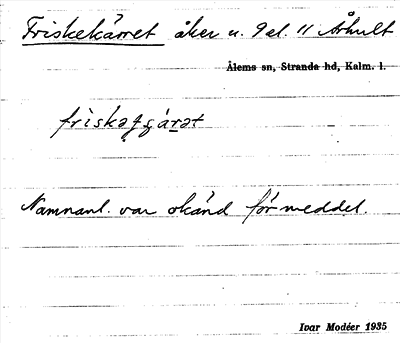 Friskekärret åker u. 9 el. 11 Århult
Ålems sn, Stranda hd, Kalm. l.
Namnanl. var okänd för meddel.
Ivar Modéer 1935